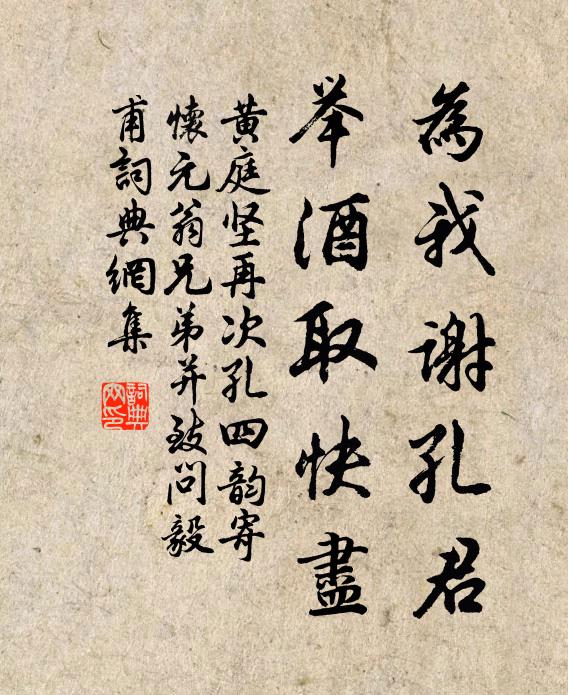 為我謝孔君
举酒取快盡
黄庭坚再次孔四韵寄
懷元翁兄弟并致问毅
甫詞典網集
詞典
网印